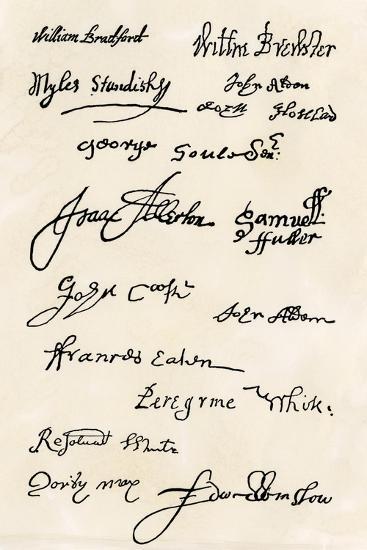 William Bradford Willm Brewster
Myles Standish John Alden
John Howland
George Soule Sen:
Isaac Allerton Samuell
ffuller
John Cooke
John Alden
ffrancis Eaton
Peregrine White.
Resolved White
Edw: Winslow